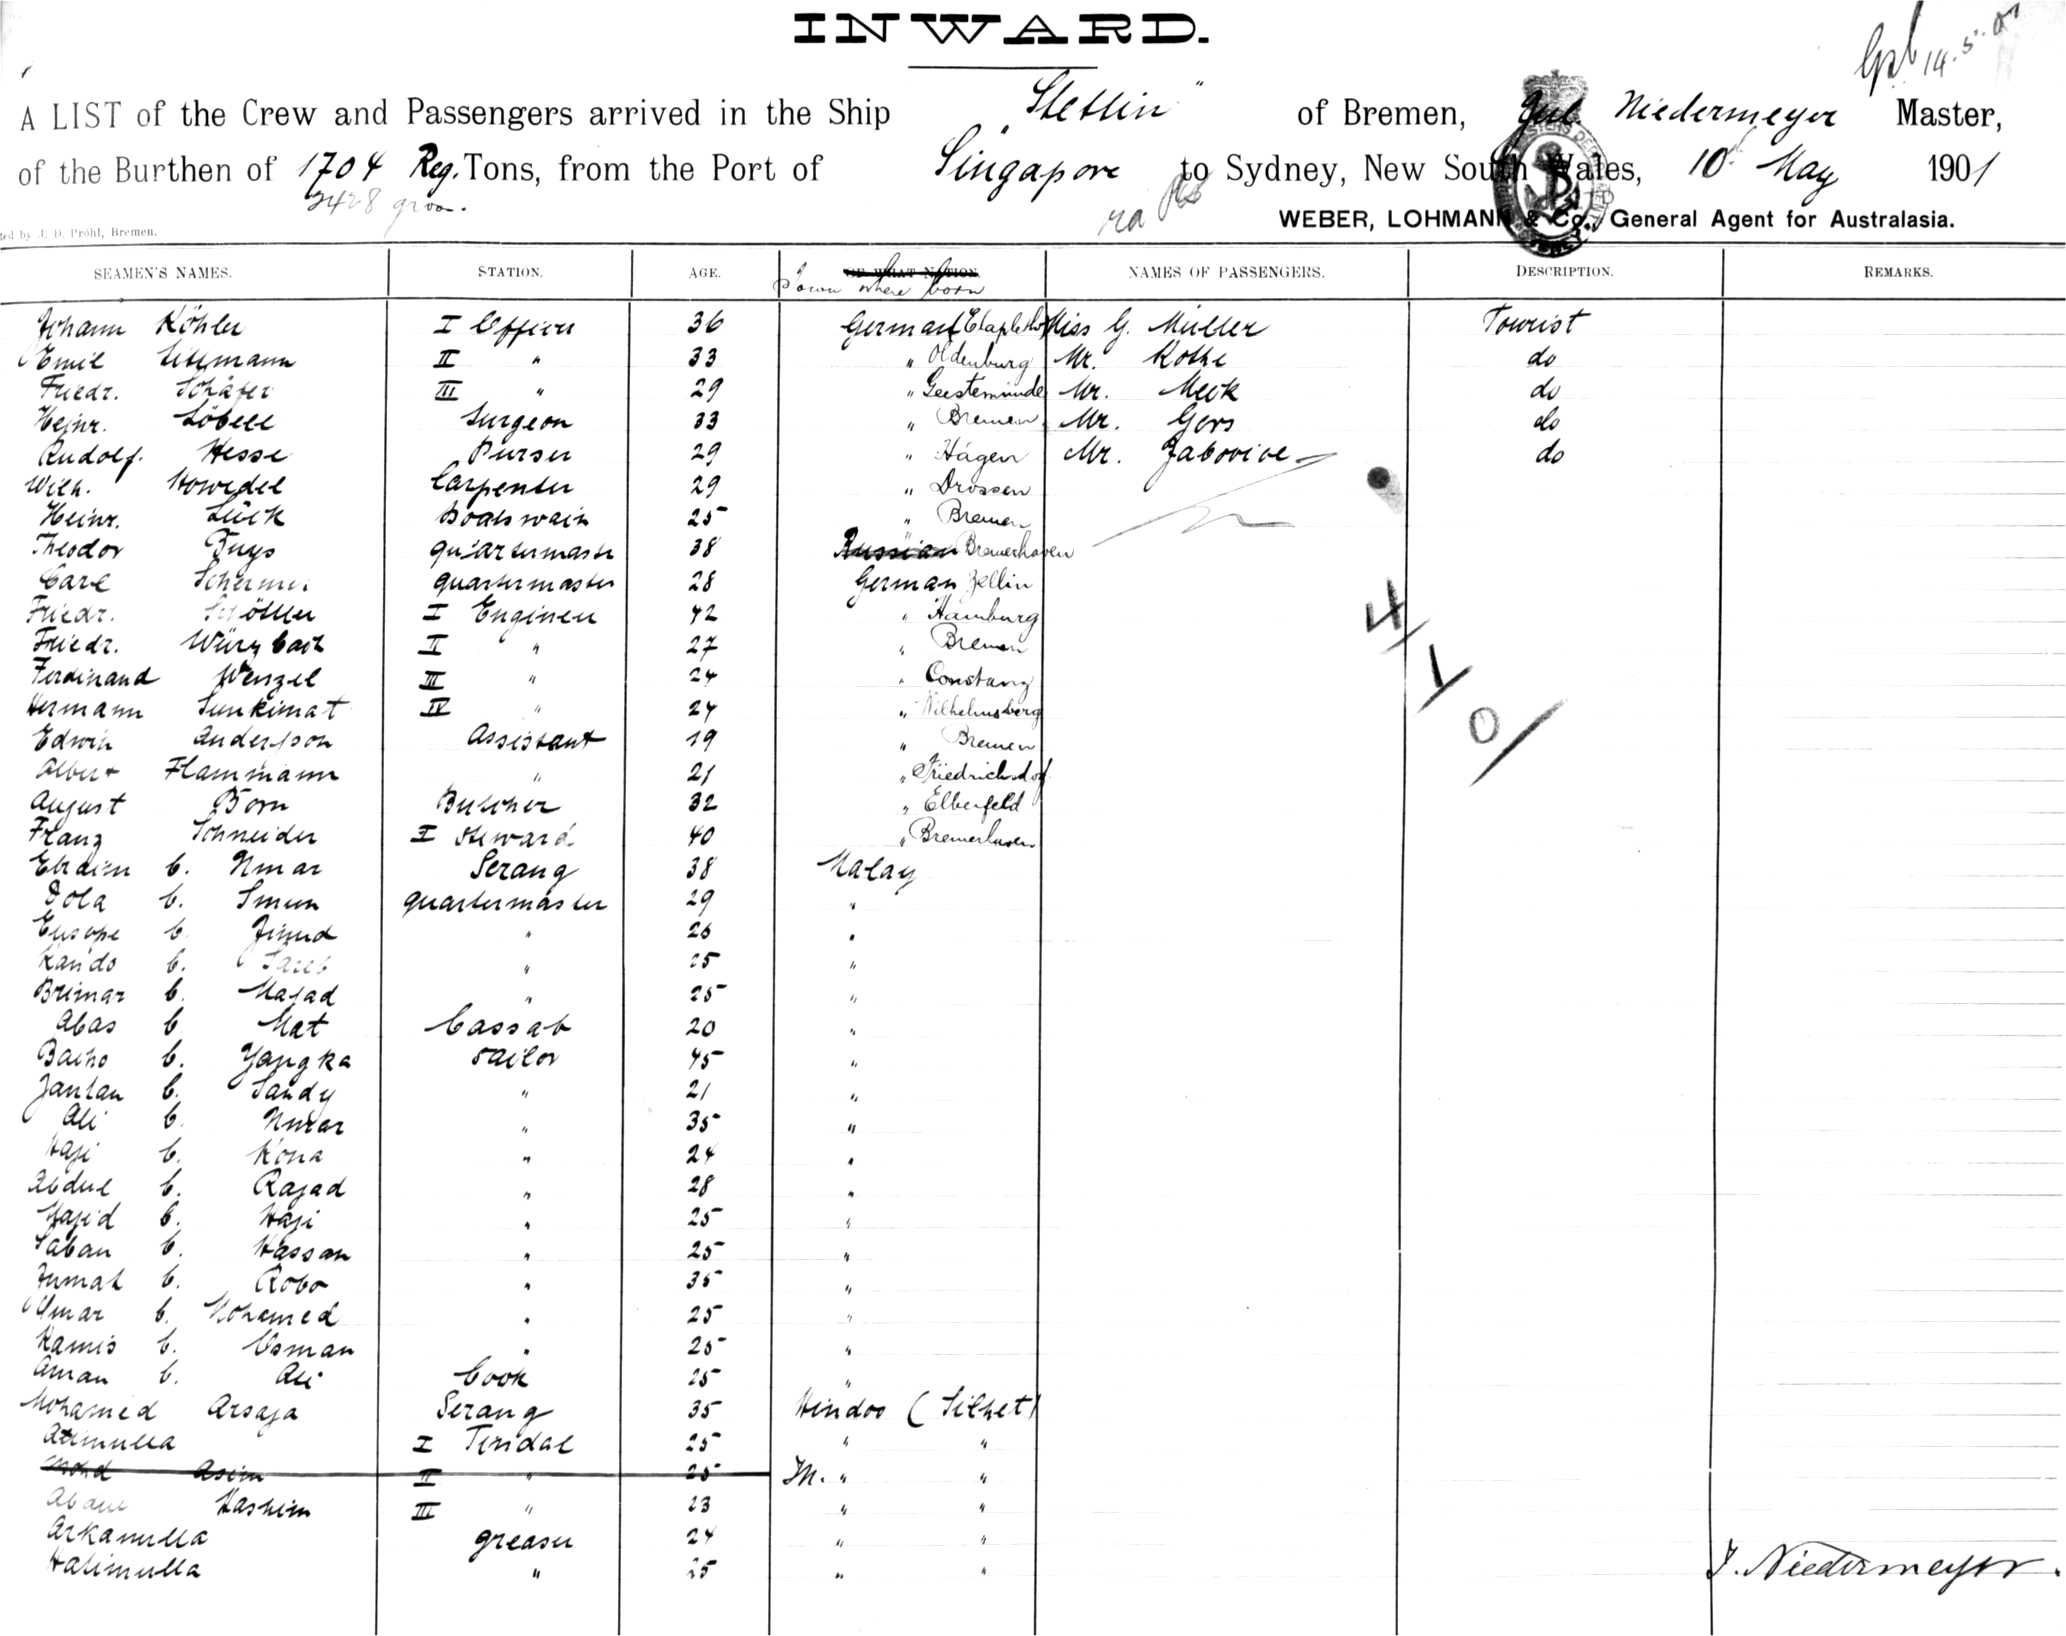 INWARD.
14.5.01
A LIST of the Crew and Passengers arrived in the Ship "Stettin" of Bremen, Jul. Niedermeyer Master,
of the Burthen of 1704 Reg. Tons, from the Port of Singapore to Sydney, New South Wales, 10 May 1901
2428 gross.
WEBER, LOHMANN & Co., General Agent for Australasia.
ted by J. D. Pröhl, Bremen.
SEAMEN'S NAMES. STATION. AGE. OF WHAT NATION NAMES OF PASSENGERS. DESCRIPTION. REMARKS.
Town where born
Johann Köhler I Officer 36 German Miss G. Müller Tourist
Emil 33 " Oldenburg Mr. Kothe do
II "
Friedr. Schäfer III " 29 " Geestemünde Mr. Meck do
Heinr. Löbell Surgeon 33 " Bremen Mr. Gers do
Rudolf Hesse Purser 29 " Hagen Mr. do
Wilh. Carpenter 29 " Drossen
Heinr. Lück Boatswain 25 " Bremen
Theodor Buys quartermaster 38 Russian Bremerhaven
Carl quartermaster 28 German Zellin
Friedr. I Engineer 42 " Hamburg
Friedr. Würzbach II " 27 " Bremen
Ferdinand Wenzel III " 24 " Constanz
Hermann Sunkimat IV " 24 " Wilhelmsberg
Edwin Andersson Assistant 19 " Bremen
Albert Flammann " 21 " Friedrichsdorf
August Born Butcher 32 " Elberfeld
Franz Schneider I Steward 40 " Bremerhaven
Ebraim b. Umar Serang 38 Malay
Dola b. Smun quartermaster 29 "
Eusope b. Jinud " 26 "
Kando b. " 25 "
Brimar b. Majad " 25 "
Abas b. Mat Cassab 20 "
Bacho b. Yangka sailor 45 "
Jantan b. Sandy " 21 "
Ali b. Umar " 35 "
Haji b. Kona " 24 "
Abdul b. Rajad " 28 "
Majid b. Haji " 25 "
Saban b. Hassan " 25 "
Jumat b. Robo " 35 "
Umar b. Mohamed " 25 "
Kamis b. Osman " 25 "
Aman b. Ali Cook 25 "
Mohamed Arsaja Serang 35 Hindoo (Silhet)
Atimulla I Tindal 25 " "
Mohd Asim II " 25 M. " "
Abdul Hashim III " 23 " "
Arkamulla greaser 24 " "
Hatimulla " 25 " "
4/
1/
0/
J. Niedermeyer.